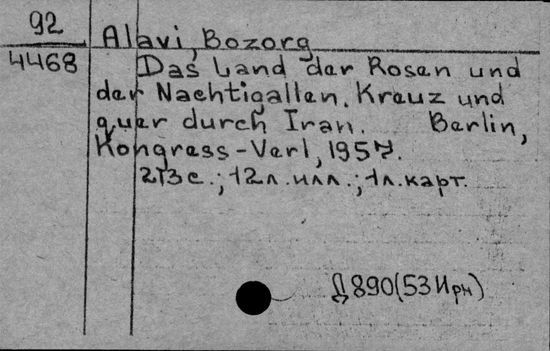 92
Alavi, Bozorg
4468 Das Land der Rosen und
der Nachtigallen. Kreuz und
quer durch Iran. Berlin,
Kongress-Verl, 1957.
213 с.; 12 л. илл.; 1 л. карт.
Д 890 (53 Ирн)